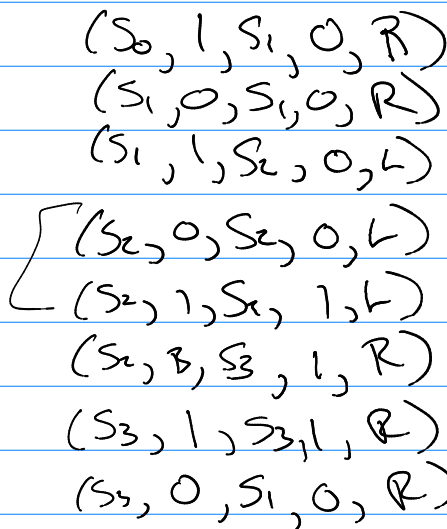 (S0, 1, S1, 0, R)
(S1, 0, S1, 0, R)
(S1, 1, S2, 0, L)
(S2, 0, S2, 0, L)
(S2, 1, S2, 1, L)
(S2, B, S3, 1, R)
(S3, 1, S3, 1, R)
(S3, 0, S1, 0, R)